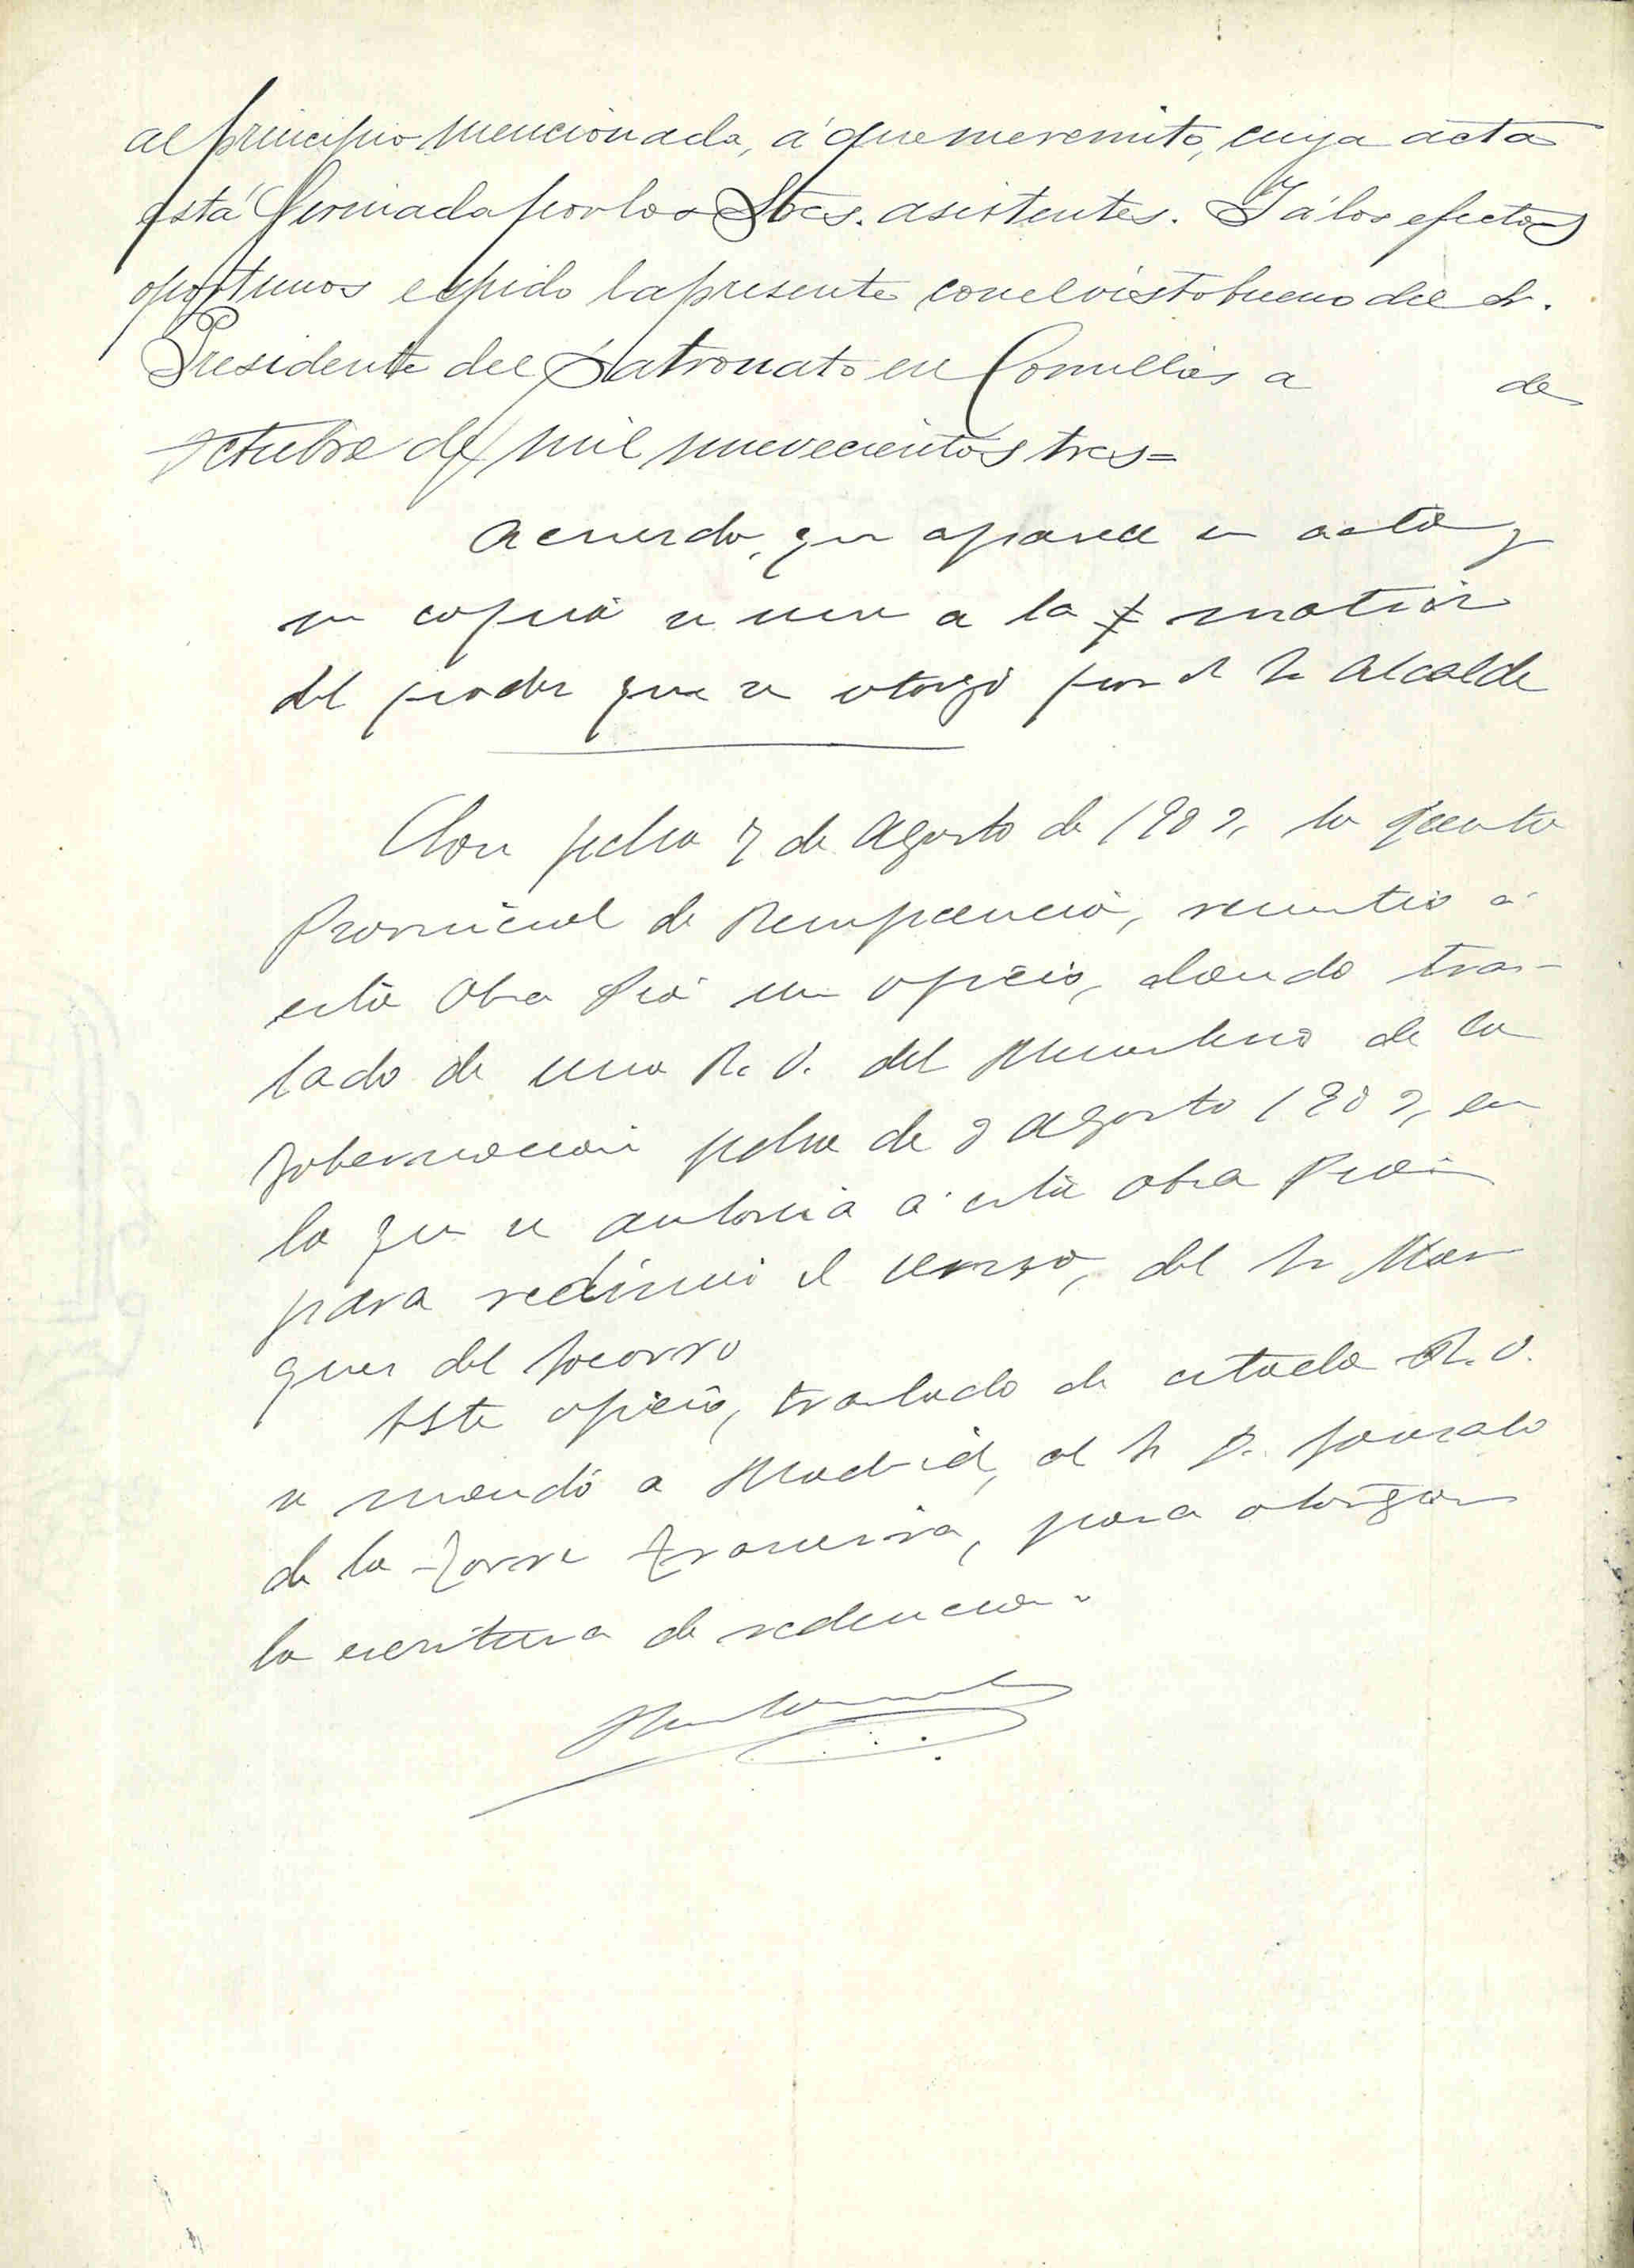 al principio mencionada, á que me remito, cuya acta
está firmada por los Sres. asistentes. Y á los efectos
oportunos expido la presente con el visto bueno del Sr.
Presidente del Patronato en Comillas a de
octubre de mil nuevecientos tres=
Acuerdo, que aparece en acta y
su copia se une a la matriz
del poder que se otorgó por el Sr Alcalde
Con fecha 7 de Agosto de 1909, la Junta
Provincial de Beneficencia, remitió á
esta Obra Pía un oficio, dando tras-
lado de una R. O. del Ministerio de la
Gobernación fecha de Agosto 1909, en
la que se autoriza á esta Obra Pía
para redimir el censo, del Sr Mar
ques del Socorro
Este oficio, traslado de citada R. O.
se mandó a Madrid, al Sr D. Gonzalo
de la Torre Trassierra, para otorgar
la escritura de redención.